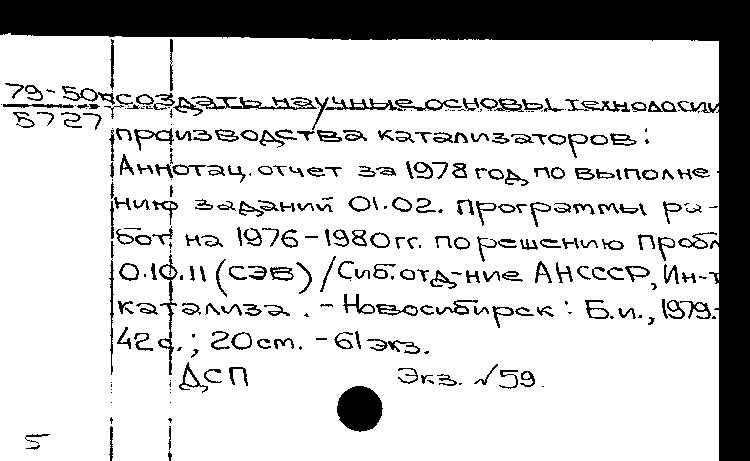 79-50к создать научные основы технологии
5727
производства катализаторов:
Аннотац. отчет за 1978 год по выполне-
нию заданий 01.02. программы ра-
бот на 1976-1980гг. по решению пробл
0.10.11 (СЭВ) / Сиб. отд-ние АНСССР, Ин-т
катализа. - Новосибирск: Б.и., 1979.-
42 с.; 20 cm. - 61 экз.
ДСП Экз. №59.
5